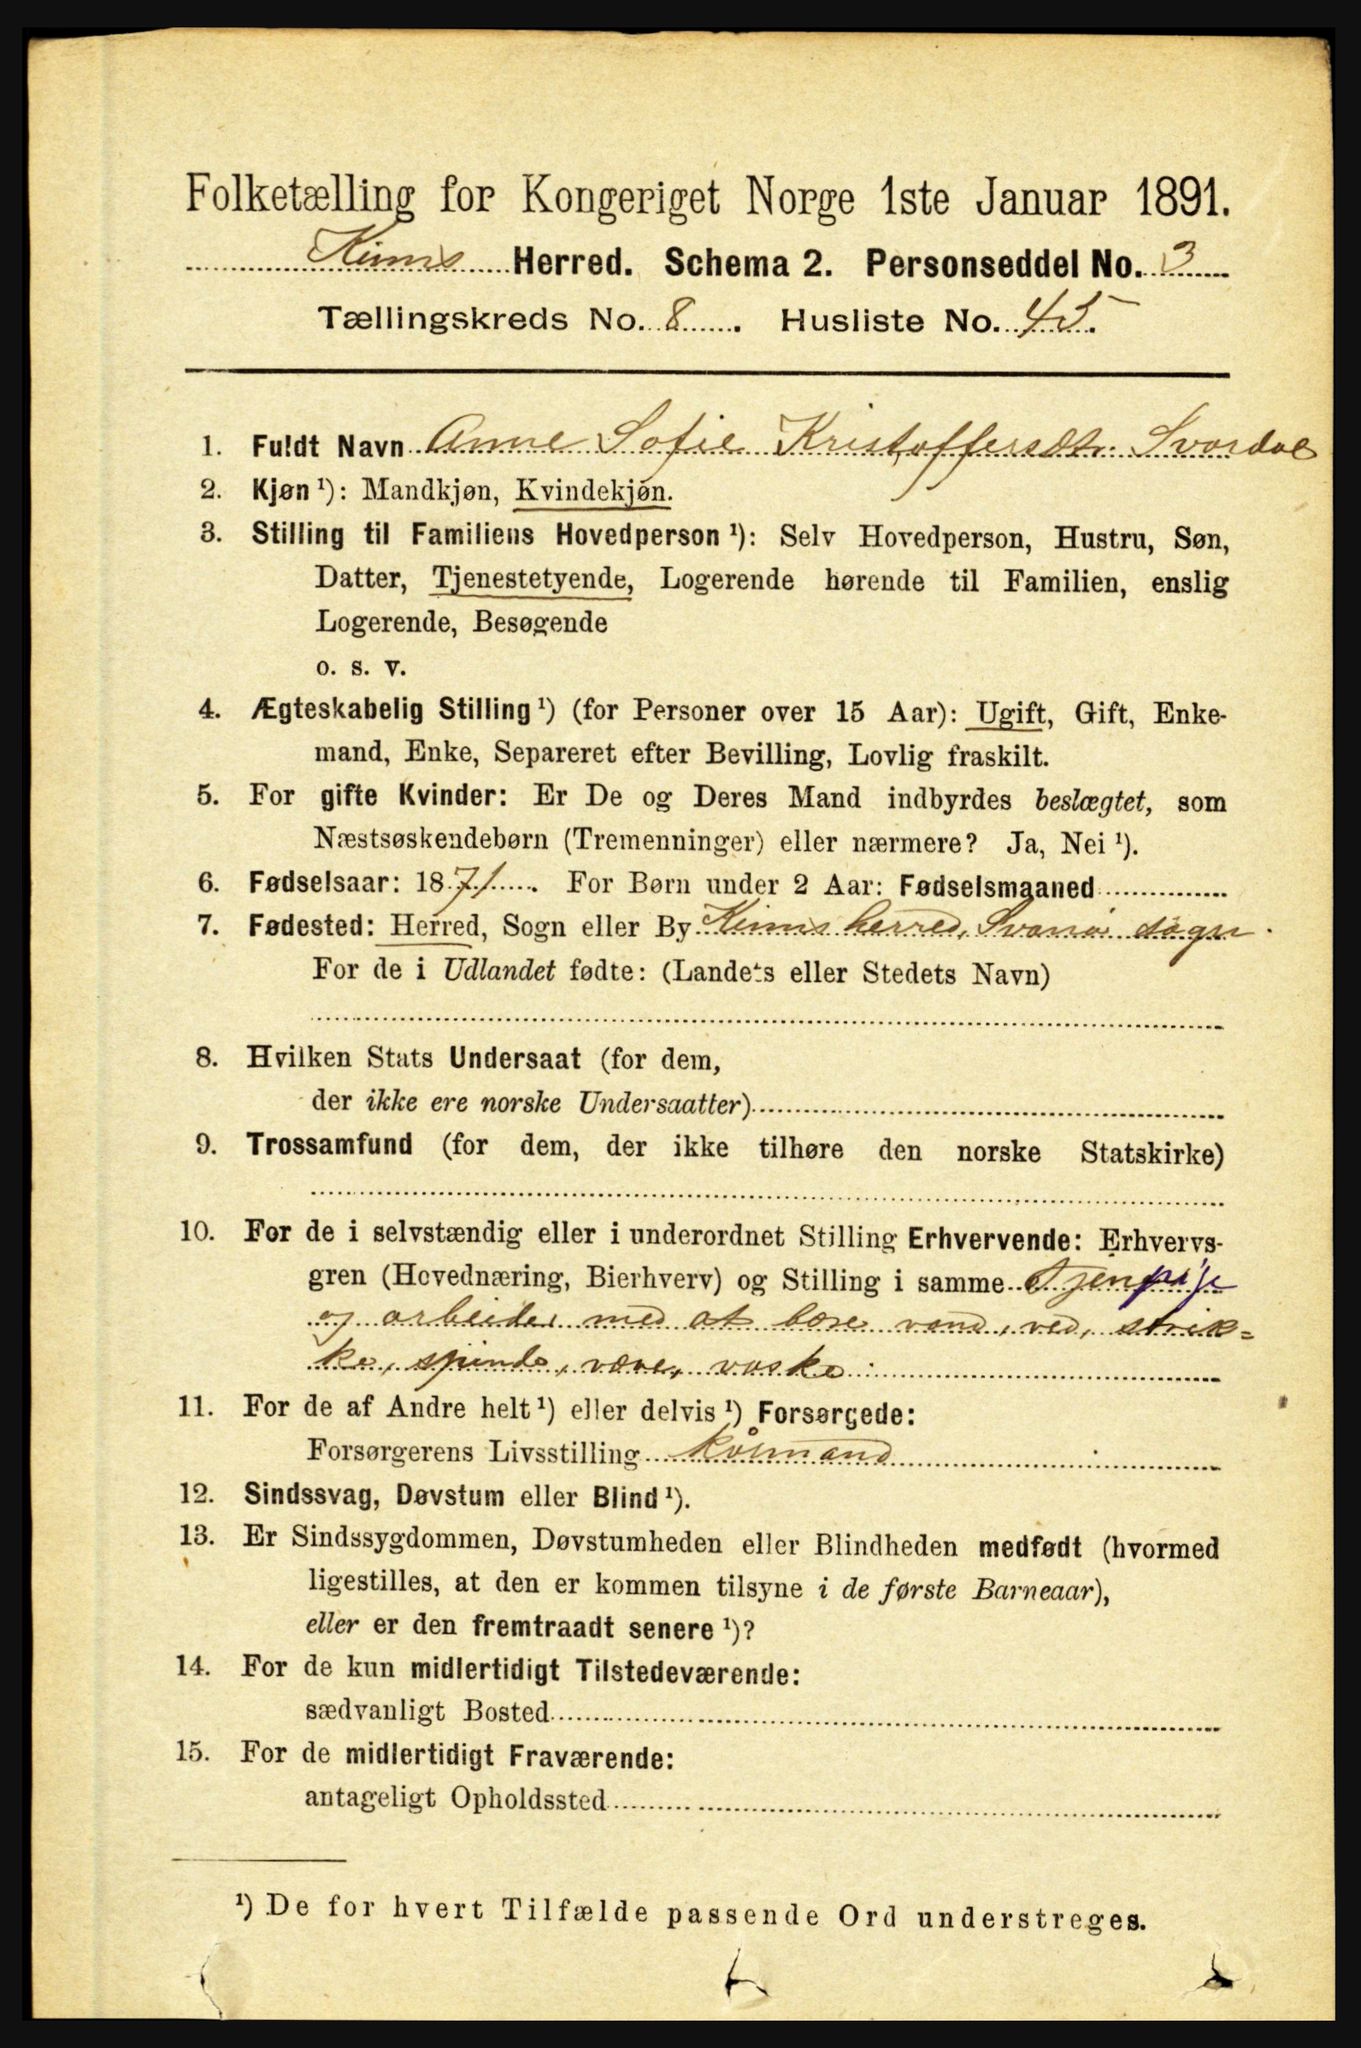 Folketælling for Kongeriget Norge 1ste Januar 1891.
Kinns Herred. Schema 2. Personseddel No. 3
Tællingskreds No. 8. Husliste No. 45.
1. Fuldt Navn Anne Sofie Kristoffersdt. Svardal
2. Kjøn ¹): Mandkjøn, Kvindekjøn.
3. Stilling til Familiens Hovedperson ¹): Selv Hovedperson, Hustru, Søn,
Datter, Tjenestetyende, Logerende hørende til Familien, enslig
Logerende, Besøgende
o. s. v.
4. Ægteskabelig Stilling ¹) (for Personer over 15 Aar): Ugift, Gift, Enke-
mand, Enke, Separeret efter Bevilling, Lovlig fraskilt.
5. For gifte Kvinder: Er De og Deres Mand indbyrdes beslægtet, som
Næstsøskendebørn (Tremenninger) eller nærmere? Ja, Nei ¹).
6. Fødselsaar: 1871. For Børn under 2 Aar: Fødselsmaaned
7. Fødested: Herred, Sogn eller By Kinns herred, Svanø sogn.
For de i Udlandet fødte: (Landets eller Stedets Navn)
8. Hvilken Stats Undersaat (for dem,
der ikke ere norske Undersaatter)
9. Trossamfund (for dem, der ikke tilhøre den norske Statskirke)
10. For de i selvstændig eller i underordnet Stilling Erhvervende: Erhvervs-
gren (Hovednæring, Bierhverv) og Stilling i samme Tjenpije
og arbeider med at bære vand, ved, strik-
ke, spinde, væve, vaske
11. For de af Andre helt ¹) eller delvis ¹) Forsørgede:
Forsørgerens Livsstilling
12. Sindssvag, Døvstum eller Blind ¹).
13. Er Sindssygdommen, Døvstumheden eller Blindheden medfødt (hvormed
ligestilles, at den er kommen tilsyne i de første Barneaar),
eller er den fremtraadt senere ¹)?
14. For de kun midlertidigt Tilstedeværende:
sædvanligt Bosted
15. For de midlertidigt Fraværende:
antageligt Opholdssted
¹) De for hvert Tilfælde passende Ord understreges.